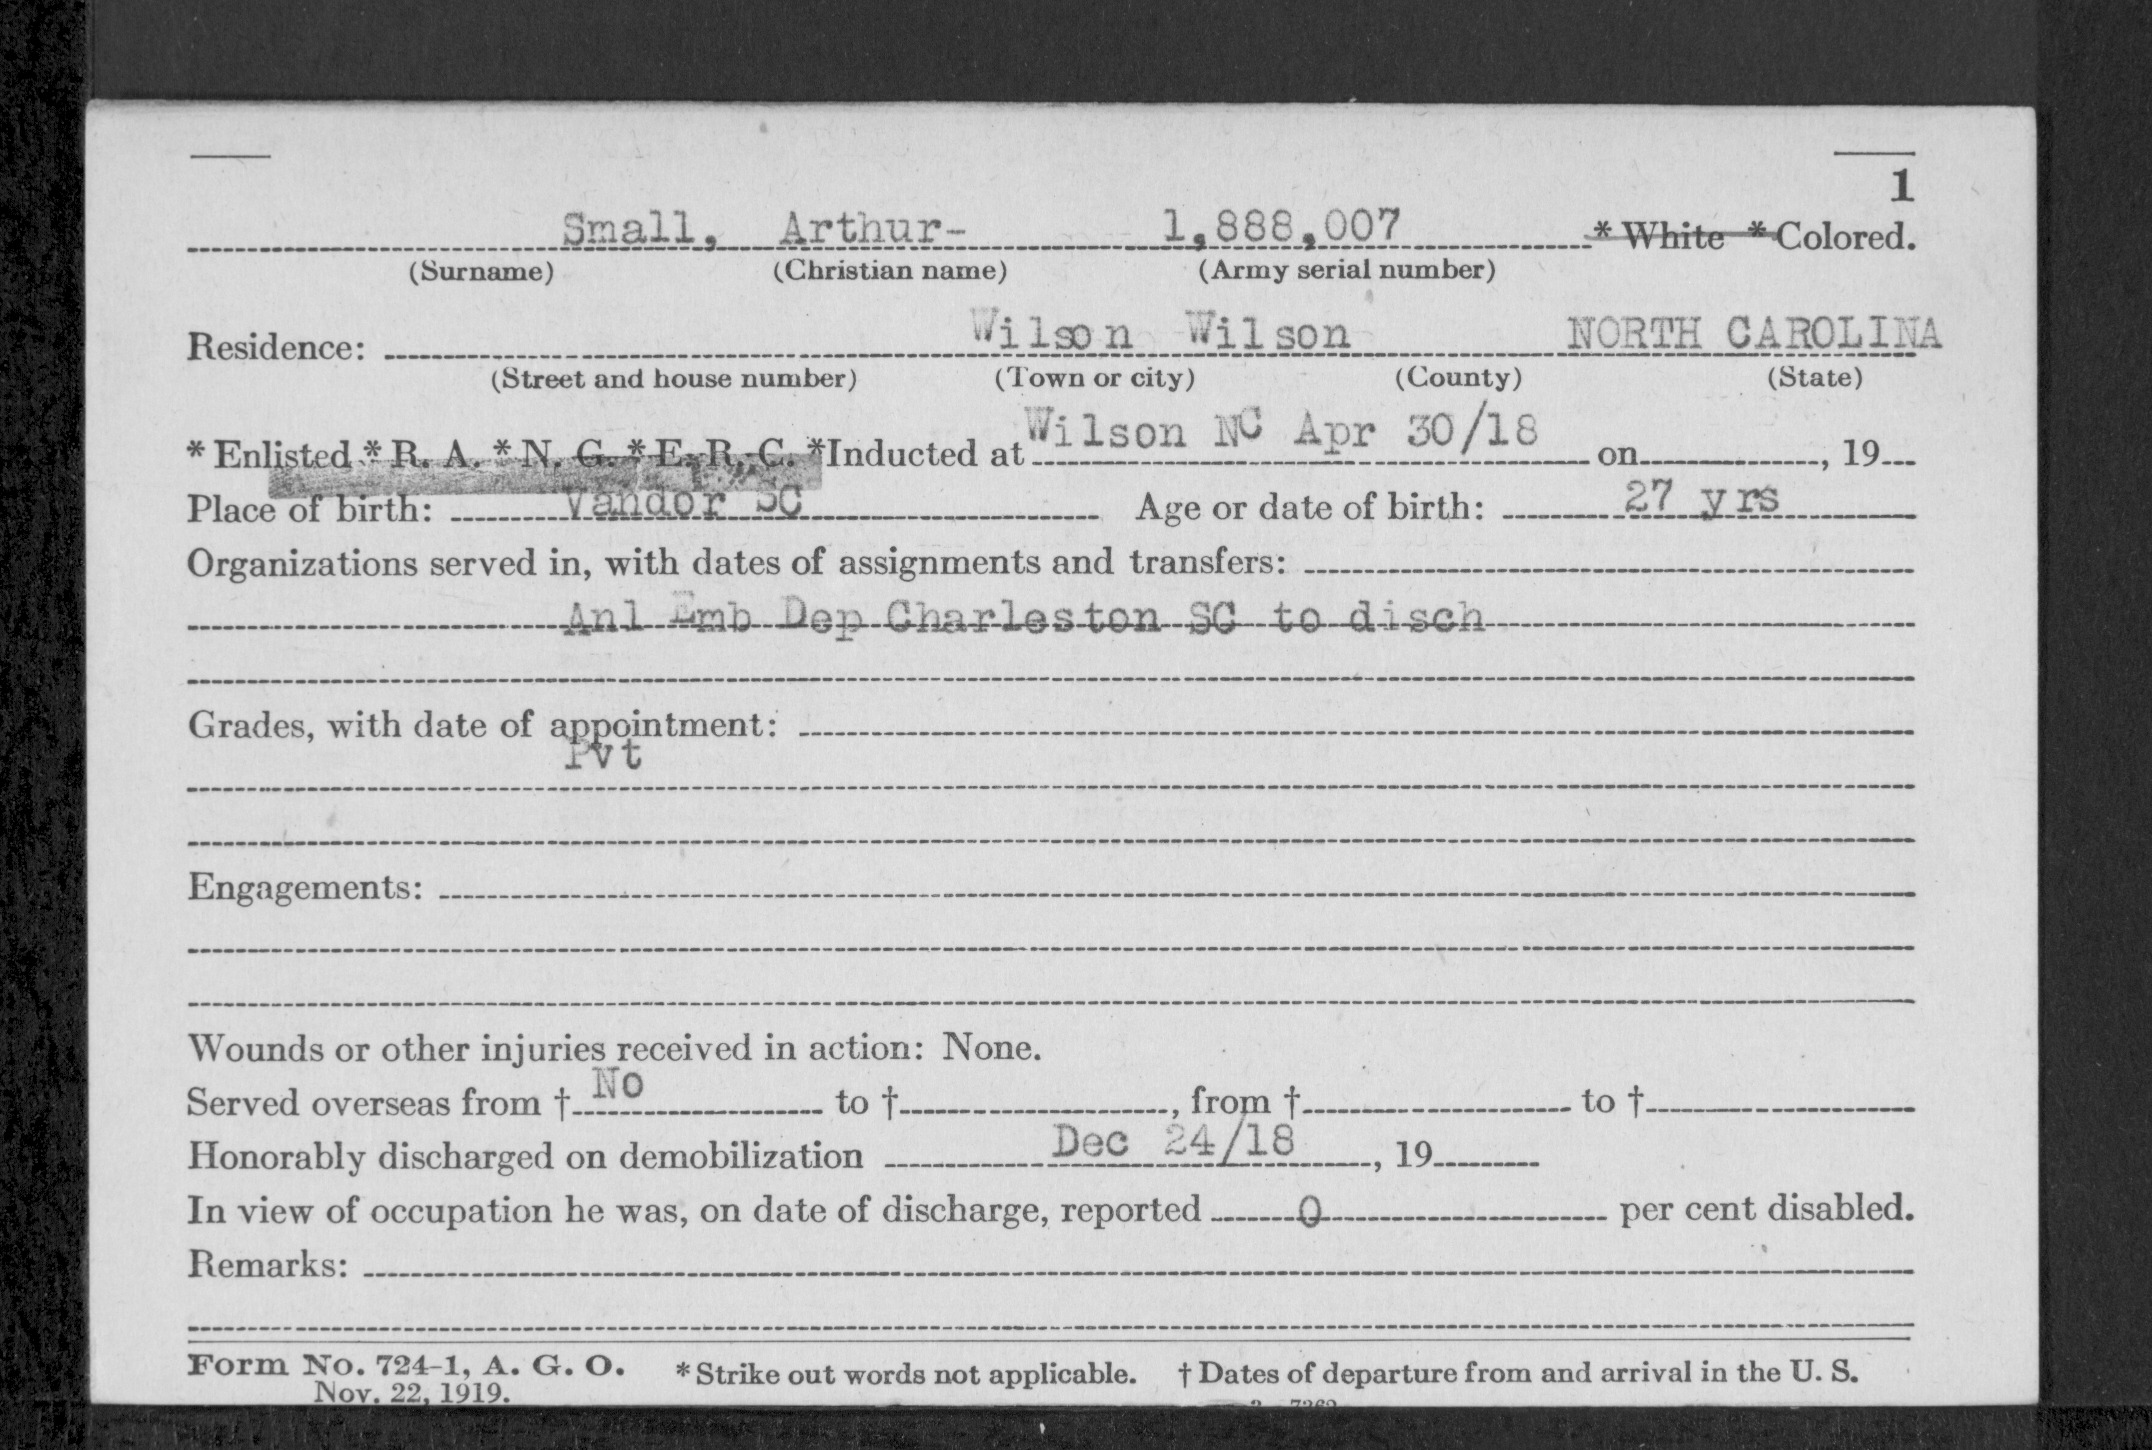 1
Small, Arthur- 1,888,007 * White * Colored.
(Surname) (Christian name) (Army serial number)
Residence: Wilson Wilson NORTH CAROLINA
(Street and house number) (Town or city) (County) (State)
* Enlisted * R. A. * N. G. * E. R. C. *Inducted at Wilson NC Apr 30/18 on , 19
Place of birth: Vandor SC Age or date of birth: 27 yrs
Organizations served in, with dates of assignments and transfers:
Anl Emb Dep Charleston SC to disch
Grades, with date of appointment:
Pvt
Engagements:
Wounds or other injuries received in action: None.
Served overseas from † No to † , from † to †
Honorably discharged on demobilization Dec 24/18 , 19
In view of occupation he was, on date of discharge, reported 0 per cent disabled.
Remarks:
Form No. 724-1, A. G. O. * Strike out words not applicable. † Dates of departure from and arrival in the U. S.
Nov. 22, 1919.